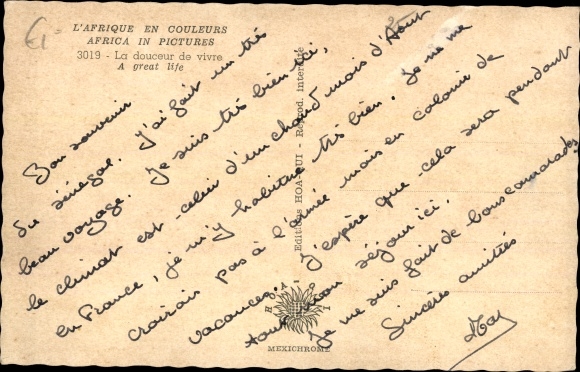 L'AFRIQUE EN COULEURS
AFRICA IN PICTURES
3019 - La douceur de vivre
A great life
Bon souvenir
du Sénégal. J'ai fait un très
beau voyage. Je suis très bien ici,
le climat est celui d'un chaud mois d'Août
en France, je m'y habitue très bien. Je ne me
croirais pas à l'armée mais en colonie de
vacances. J'espère que cela sera pendant
tout mon séjour ici.
Je me suis fait de bons camarades
Sincères amitiés
Editions HOA-QUI - Reprod. interdite
HOA QUI
MEXICHROME